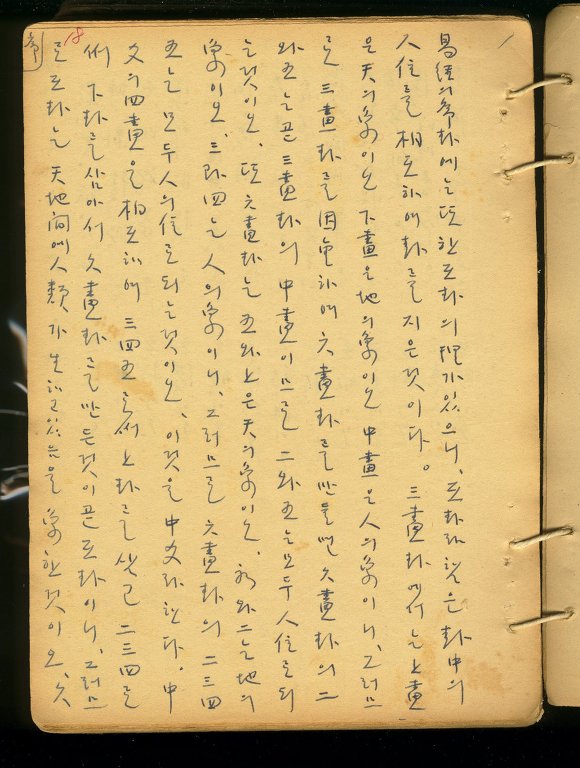 易經의 卦에는 또한 互卦의 理가 있으니, 互卦라 함은 卦中의
人位를 相互하여 卦를 지은것이다。三畫卦에서는 上畫
은 天의 象이오 下畫은 地의 象이오 中畫은 人의 象이니, 그러므
로 三畫卦를 因重하여 六畫卦를 만들면 六畫卦의 二
와 五는 곧 三畫卦의 中畫이므로 二와 五는 모두 人位로 되
는것이오, 또 六畫卦는 五와 上은 天의 象이오, 初와 二는 地의
象이오, 三과 四는 人의 象이니, 그러므로 六畫卦의 二三四
五는 모두 人의 位로 되는것이오, 이것을 中爻라 한다。中
爻의 四畫을 相互하여 三四五로써 上卦를 삼고 二三四로
써 下卦를 삼아서 六畫卦를 만든것이 곧 互卦이니, 그러므
로 互卦는 天地間에 人類가 生하고 있음을 象한것이오, 六
18